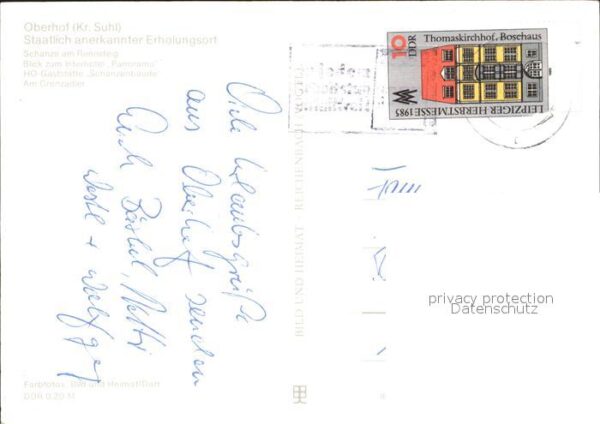 Oberhof (Kr. Suhl)
Staatlich anerkannter Erholungsort
Schanze am Rennsteig
Blick zum Interhotel „Panorama“
HO-Gaststätte „Schanzenbaude“
Am Grenzadler
Viele Urlaubsgrüße
aus Oberhof senden
Euch Bärbel,
+ Wolfgang
Farbfotos: Bild und Heimat/Darr
DDR 0,20 M
BILD UND HEIMAT REICHENBACH (VOGTL)
10
DDR
Thomaskirchhof, Boschaus
LEIPZIGER HERBSTMESSE 1985
privacy protection
Datenschutz